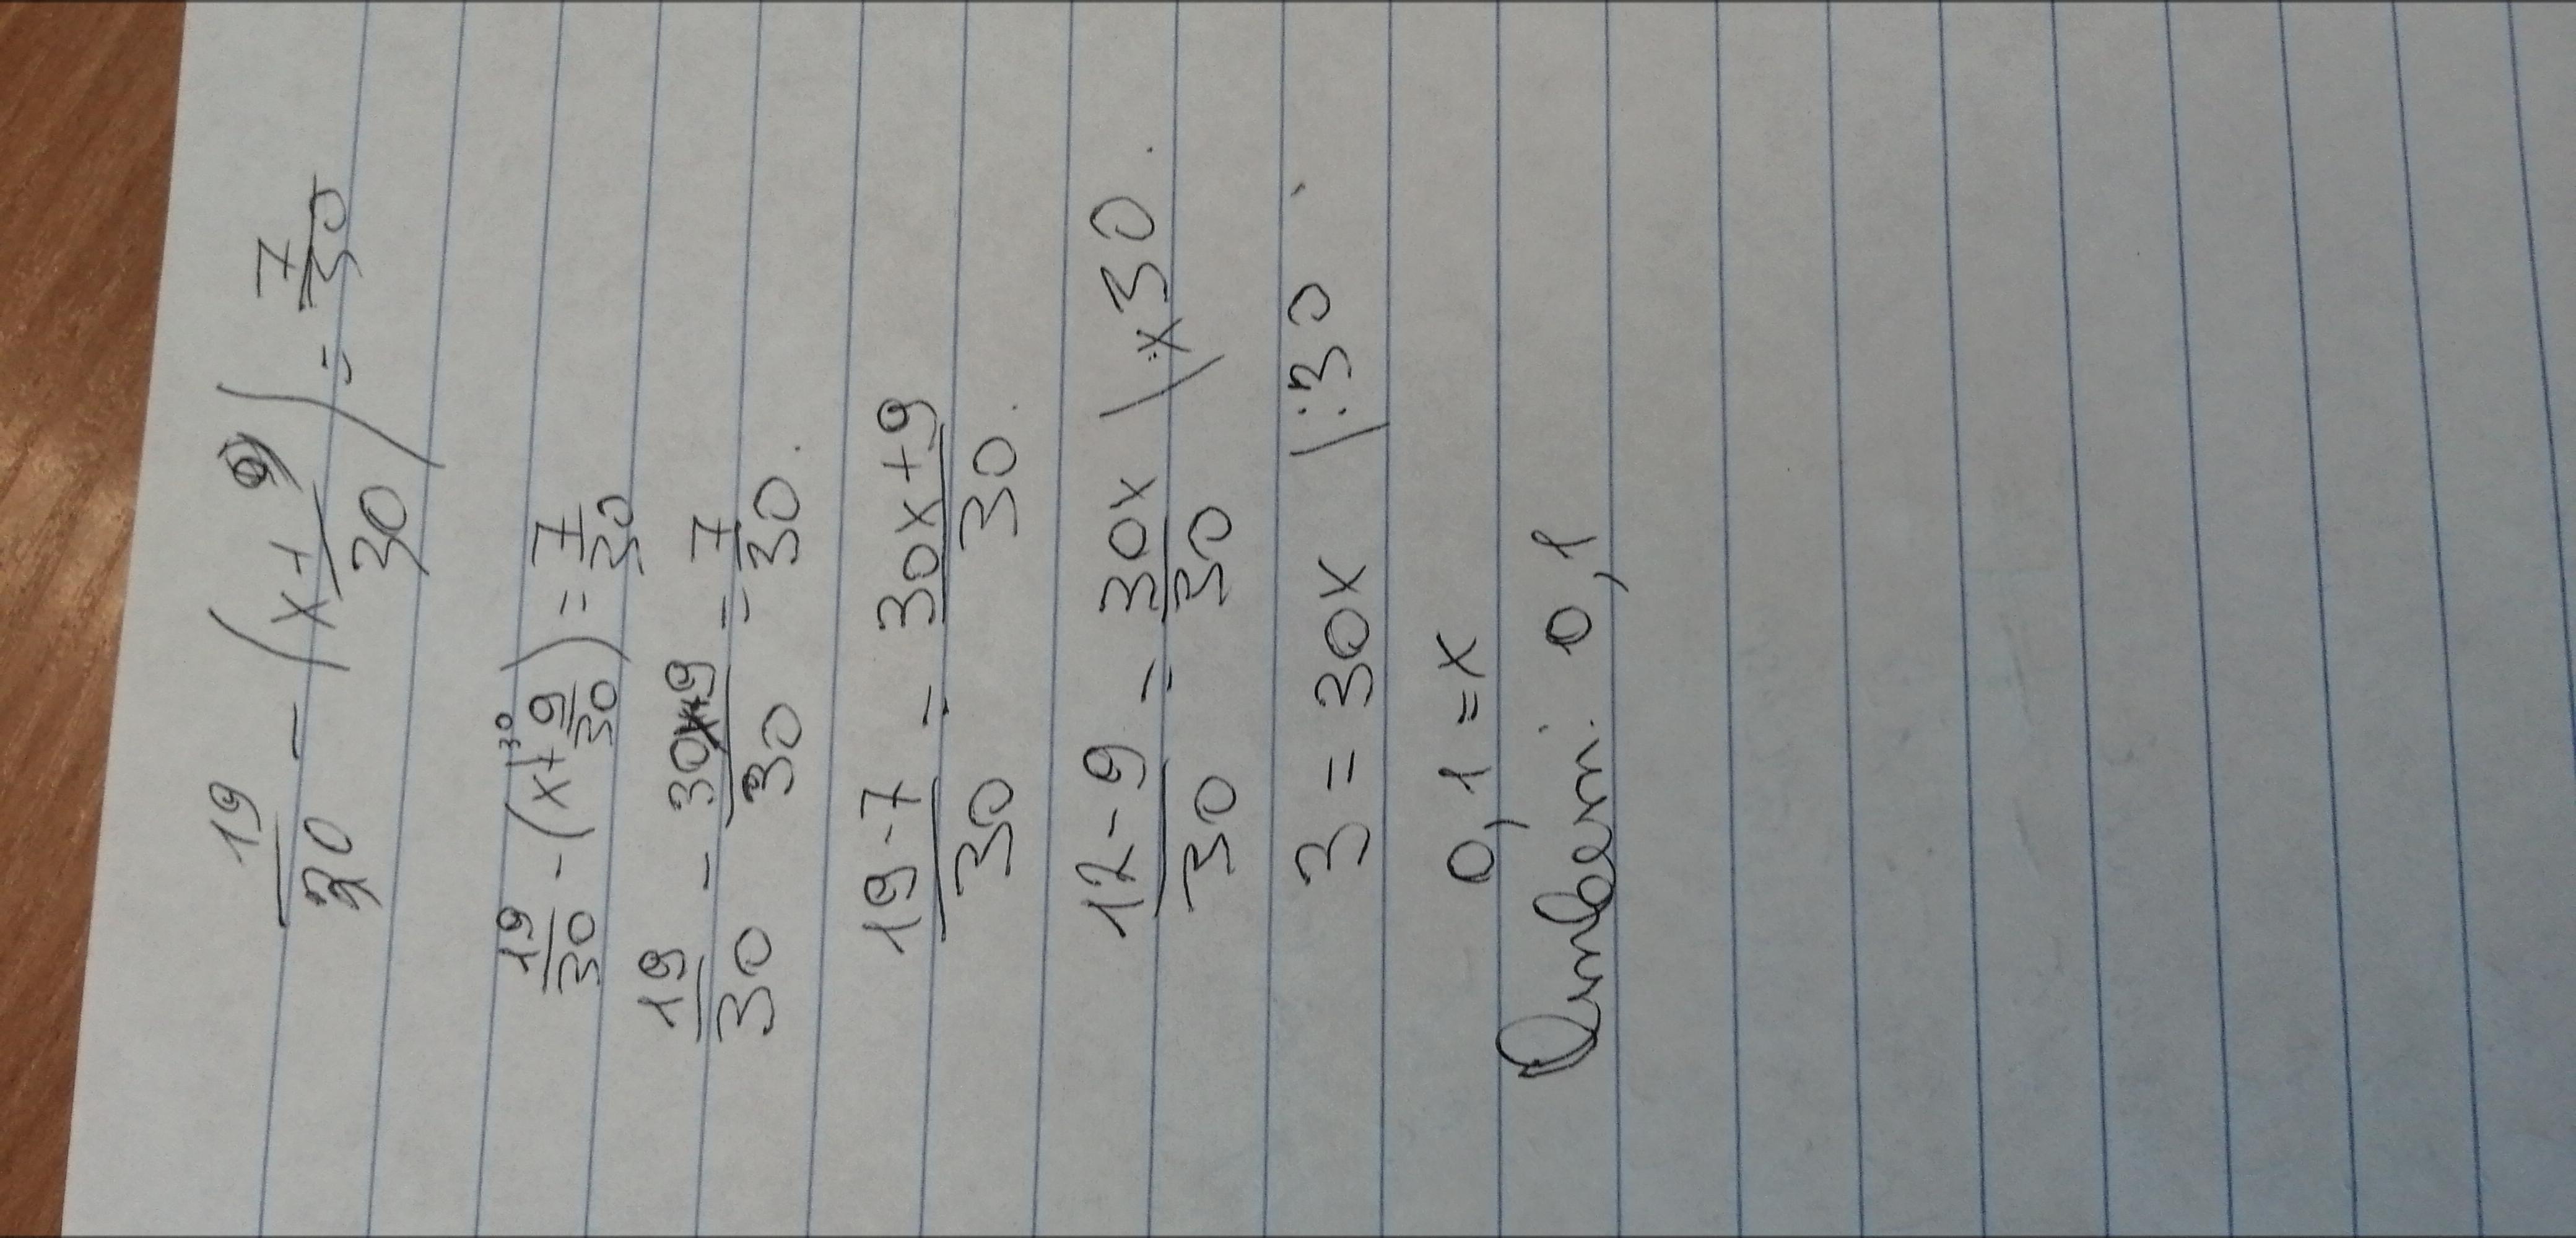 19/30 - (x + 9/30) = 7/30
19/30 - (x|³⁰ + 9/30) = 7/30
19/30 - 30x+9/30 = 7/30.
19-7/30 = 30x+9/30.
12-9/30 = 30x/30 | x30.
3 = 30x | :30
0,1 = x
Ответ: 0,1